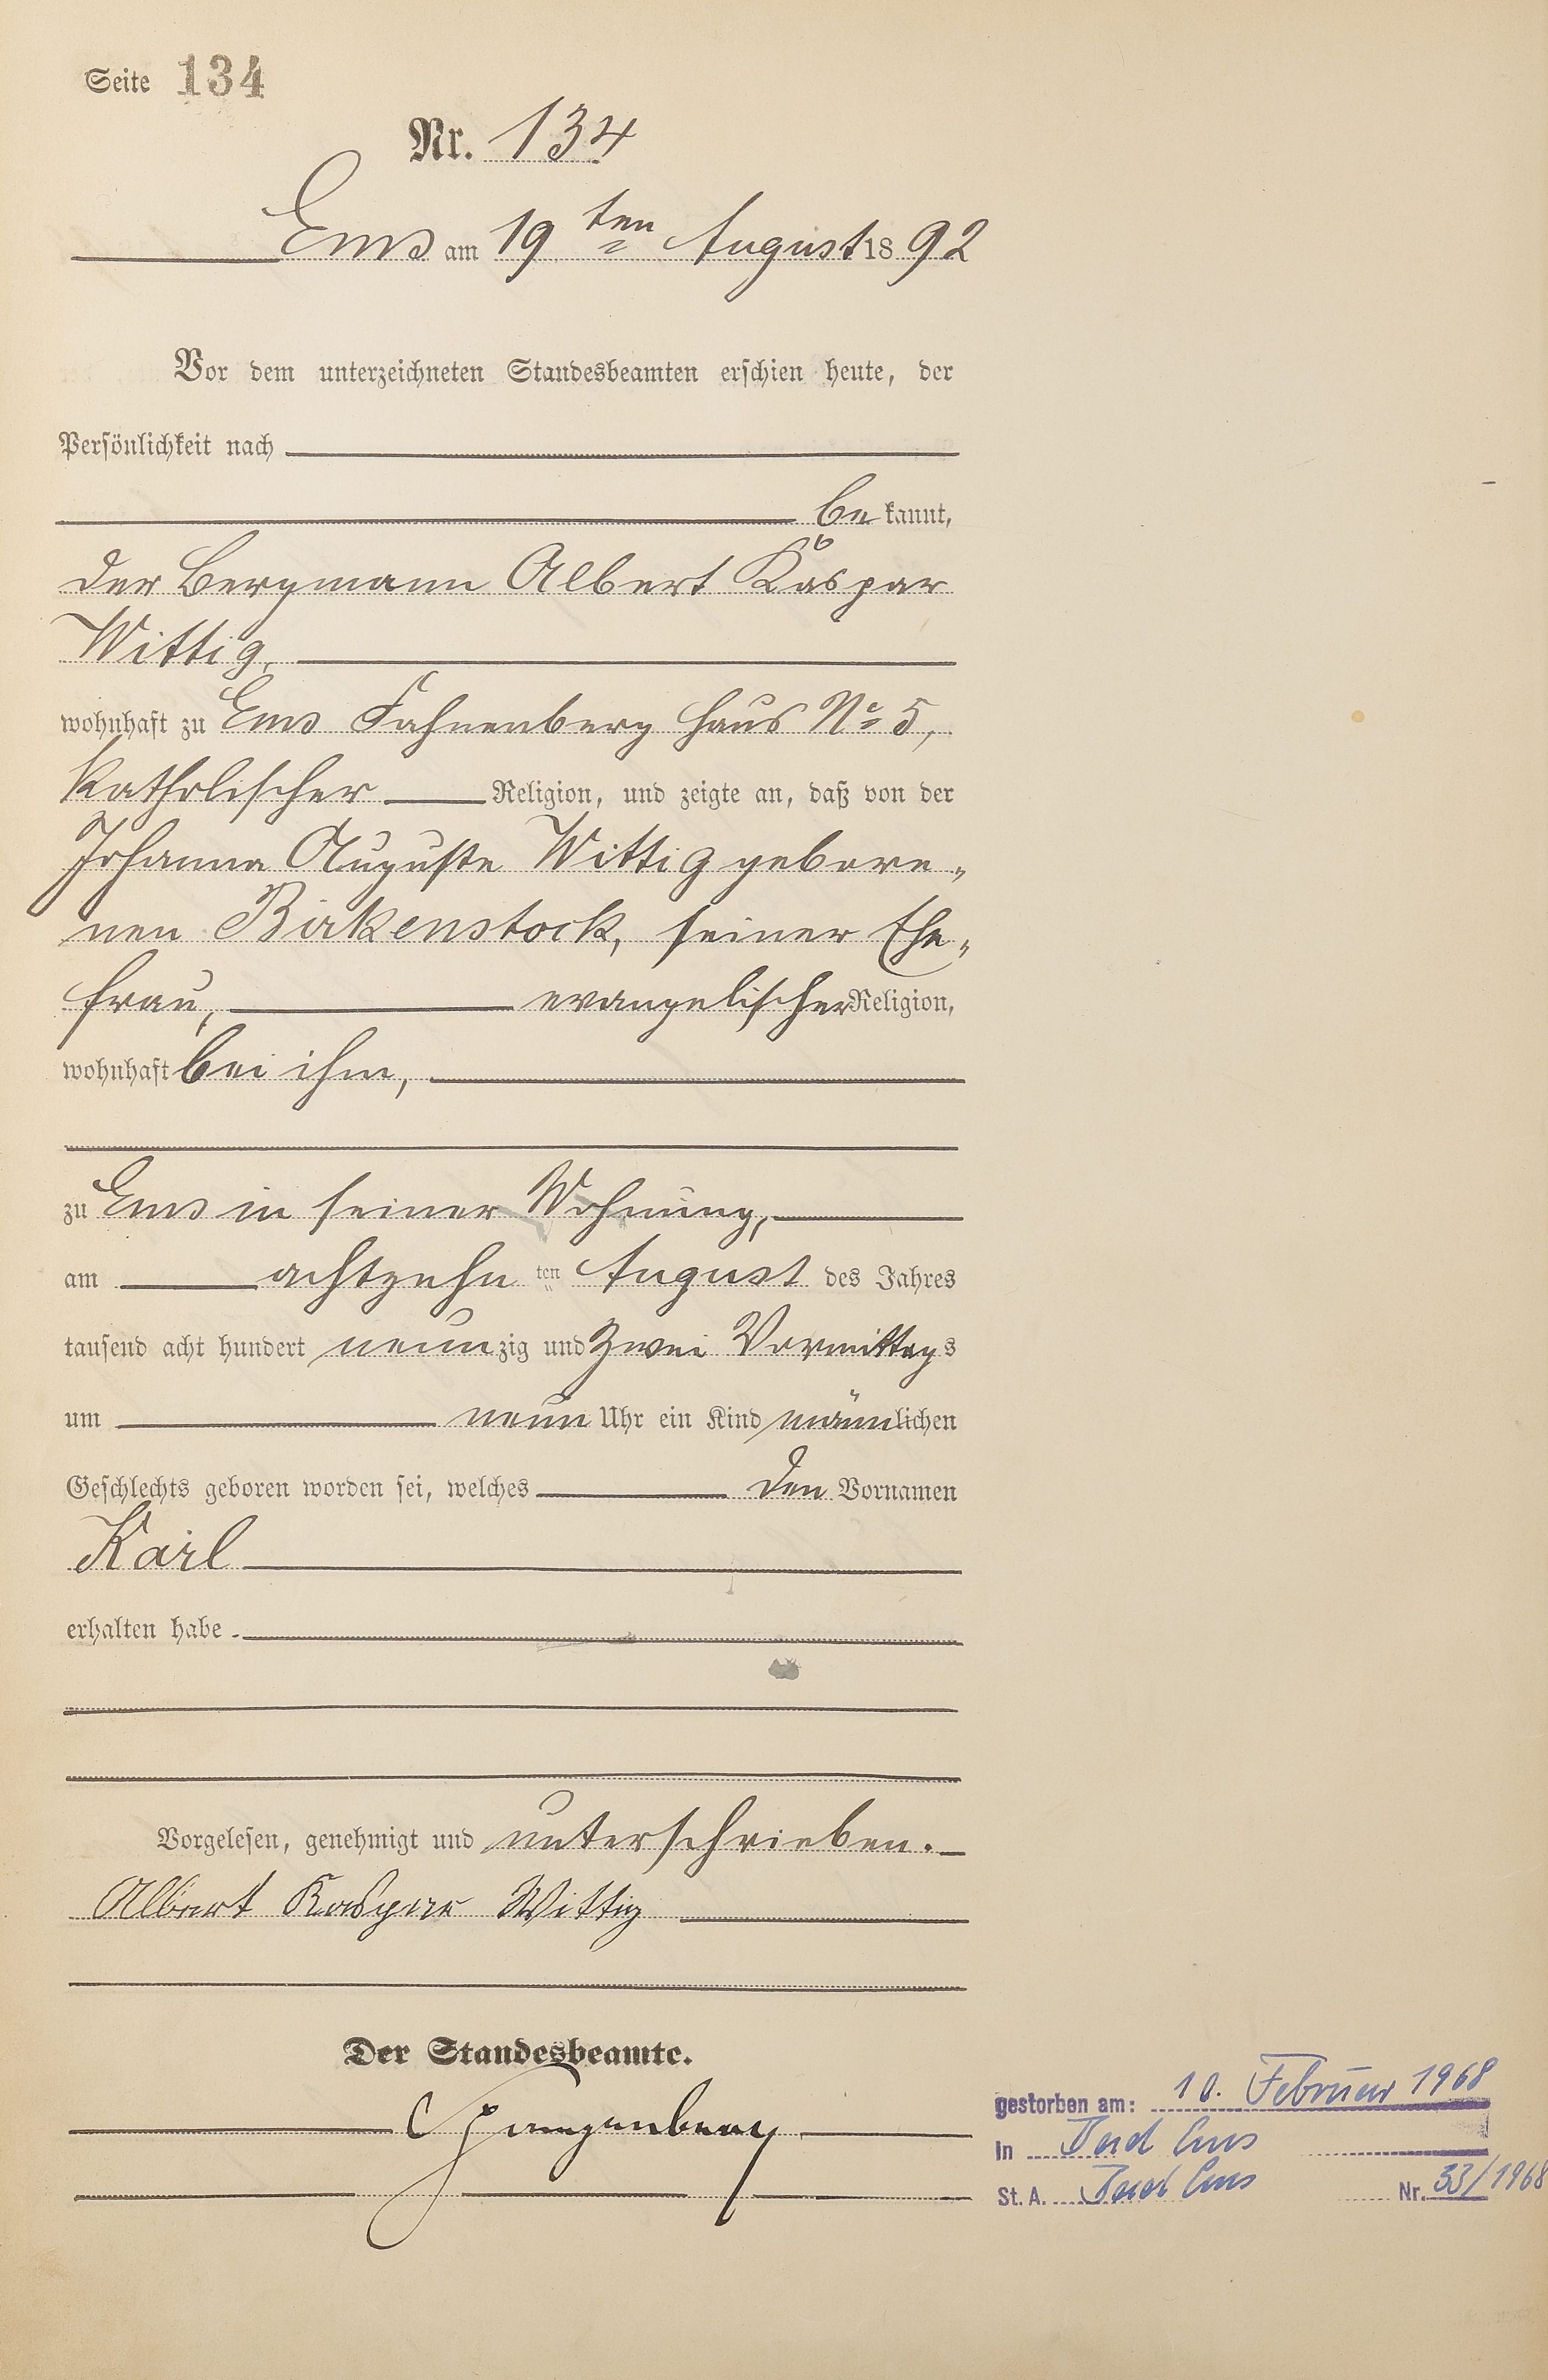 Seite 134
Nr. 134
Ems am 19ten August 1892
Vor dem unterzeichneten Standesbeamten erschien heute, der
Persönlichkeit nach
bekannt,
der Bergmann Albert Kaspar
Wittig,
wohnhaft zu Ems Fahnenberg Haus No 5,
katholischer Religion, und zeigte an, daß von der
Johanna Auguste Wittig gebore„
nen Birkenstock, seiner Ehe„
frau, evangelischer Religion,
wohnhaft bei ihm,
zu Ems in seiner Wohnung,
am achtzehnten August des Jahres
tausend acht hundert neunzig und zwei Vormittags
um neun Uhr ein Kind männlichen
Geschlechts geboren worden sei, welches den Vornamen
Karl
erhalten habe.
Vorgelesen, genehmigt und unterschrieben.
Albert Kaspar Wittig
Der Standesbeamte.
gestorben am: 10. Februar 1968
In Bad Ems
St. A. Bad Ems Nr. 33/1968